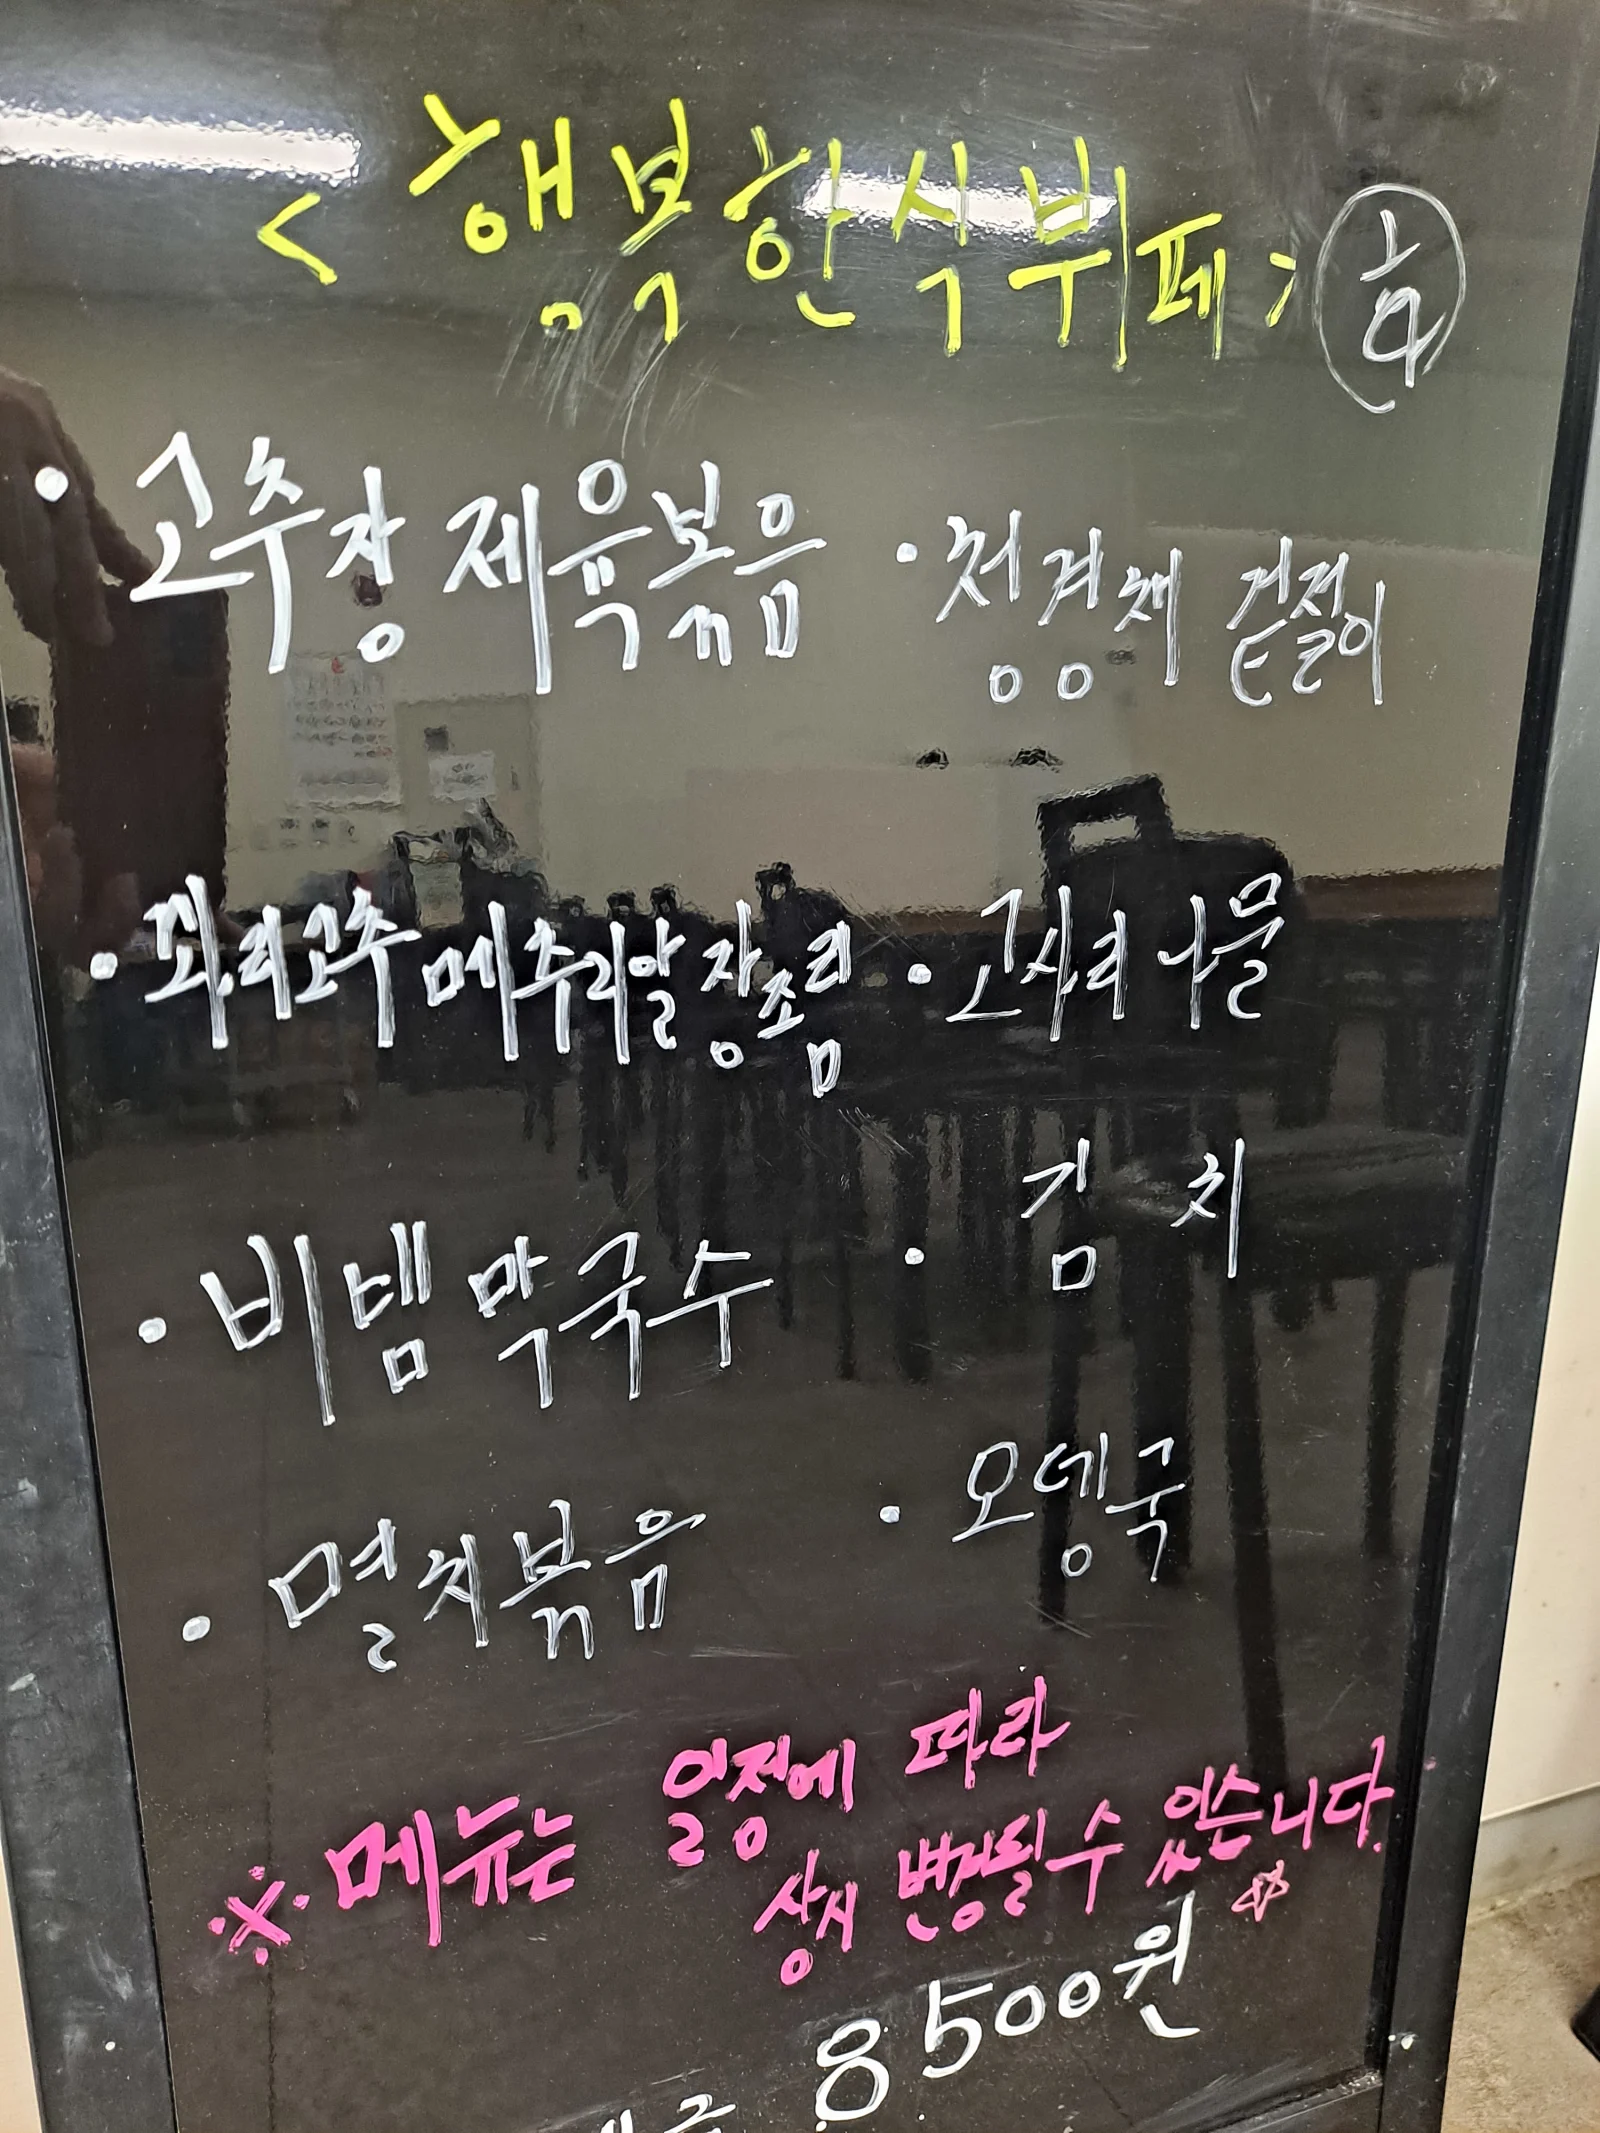 < 행복한식뷔페 >
· 고추장 제육볶음
· 청경채 겉절이
· 꽈리고추 메추리알 장조림
· 고사리 나물
· 비빔 막국수
· 김 치
· 멸치볶음
· 오뎅국
※ 메뉴는 일정에 따라
상시 변경될 수 있습니다.
8500원